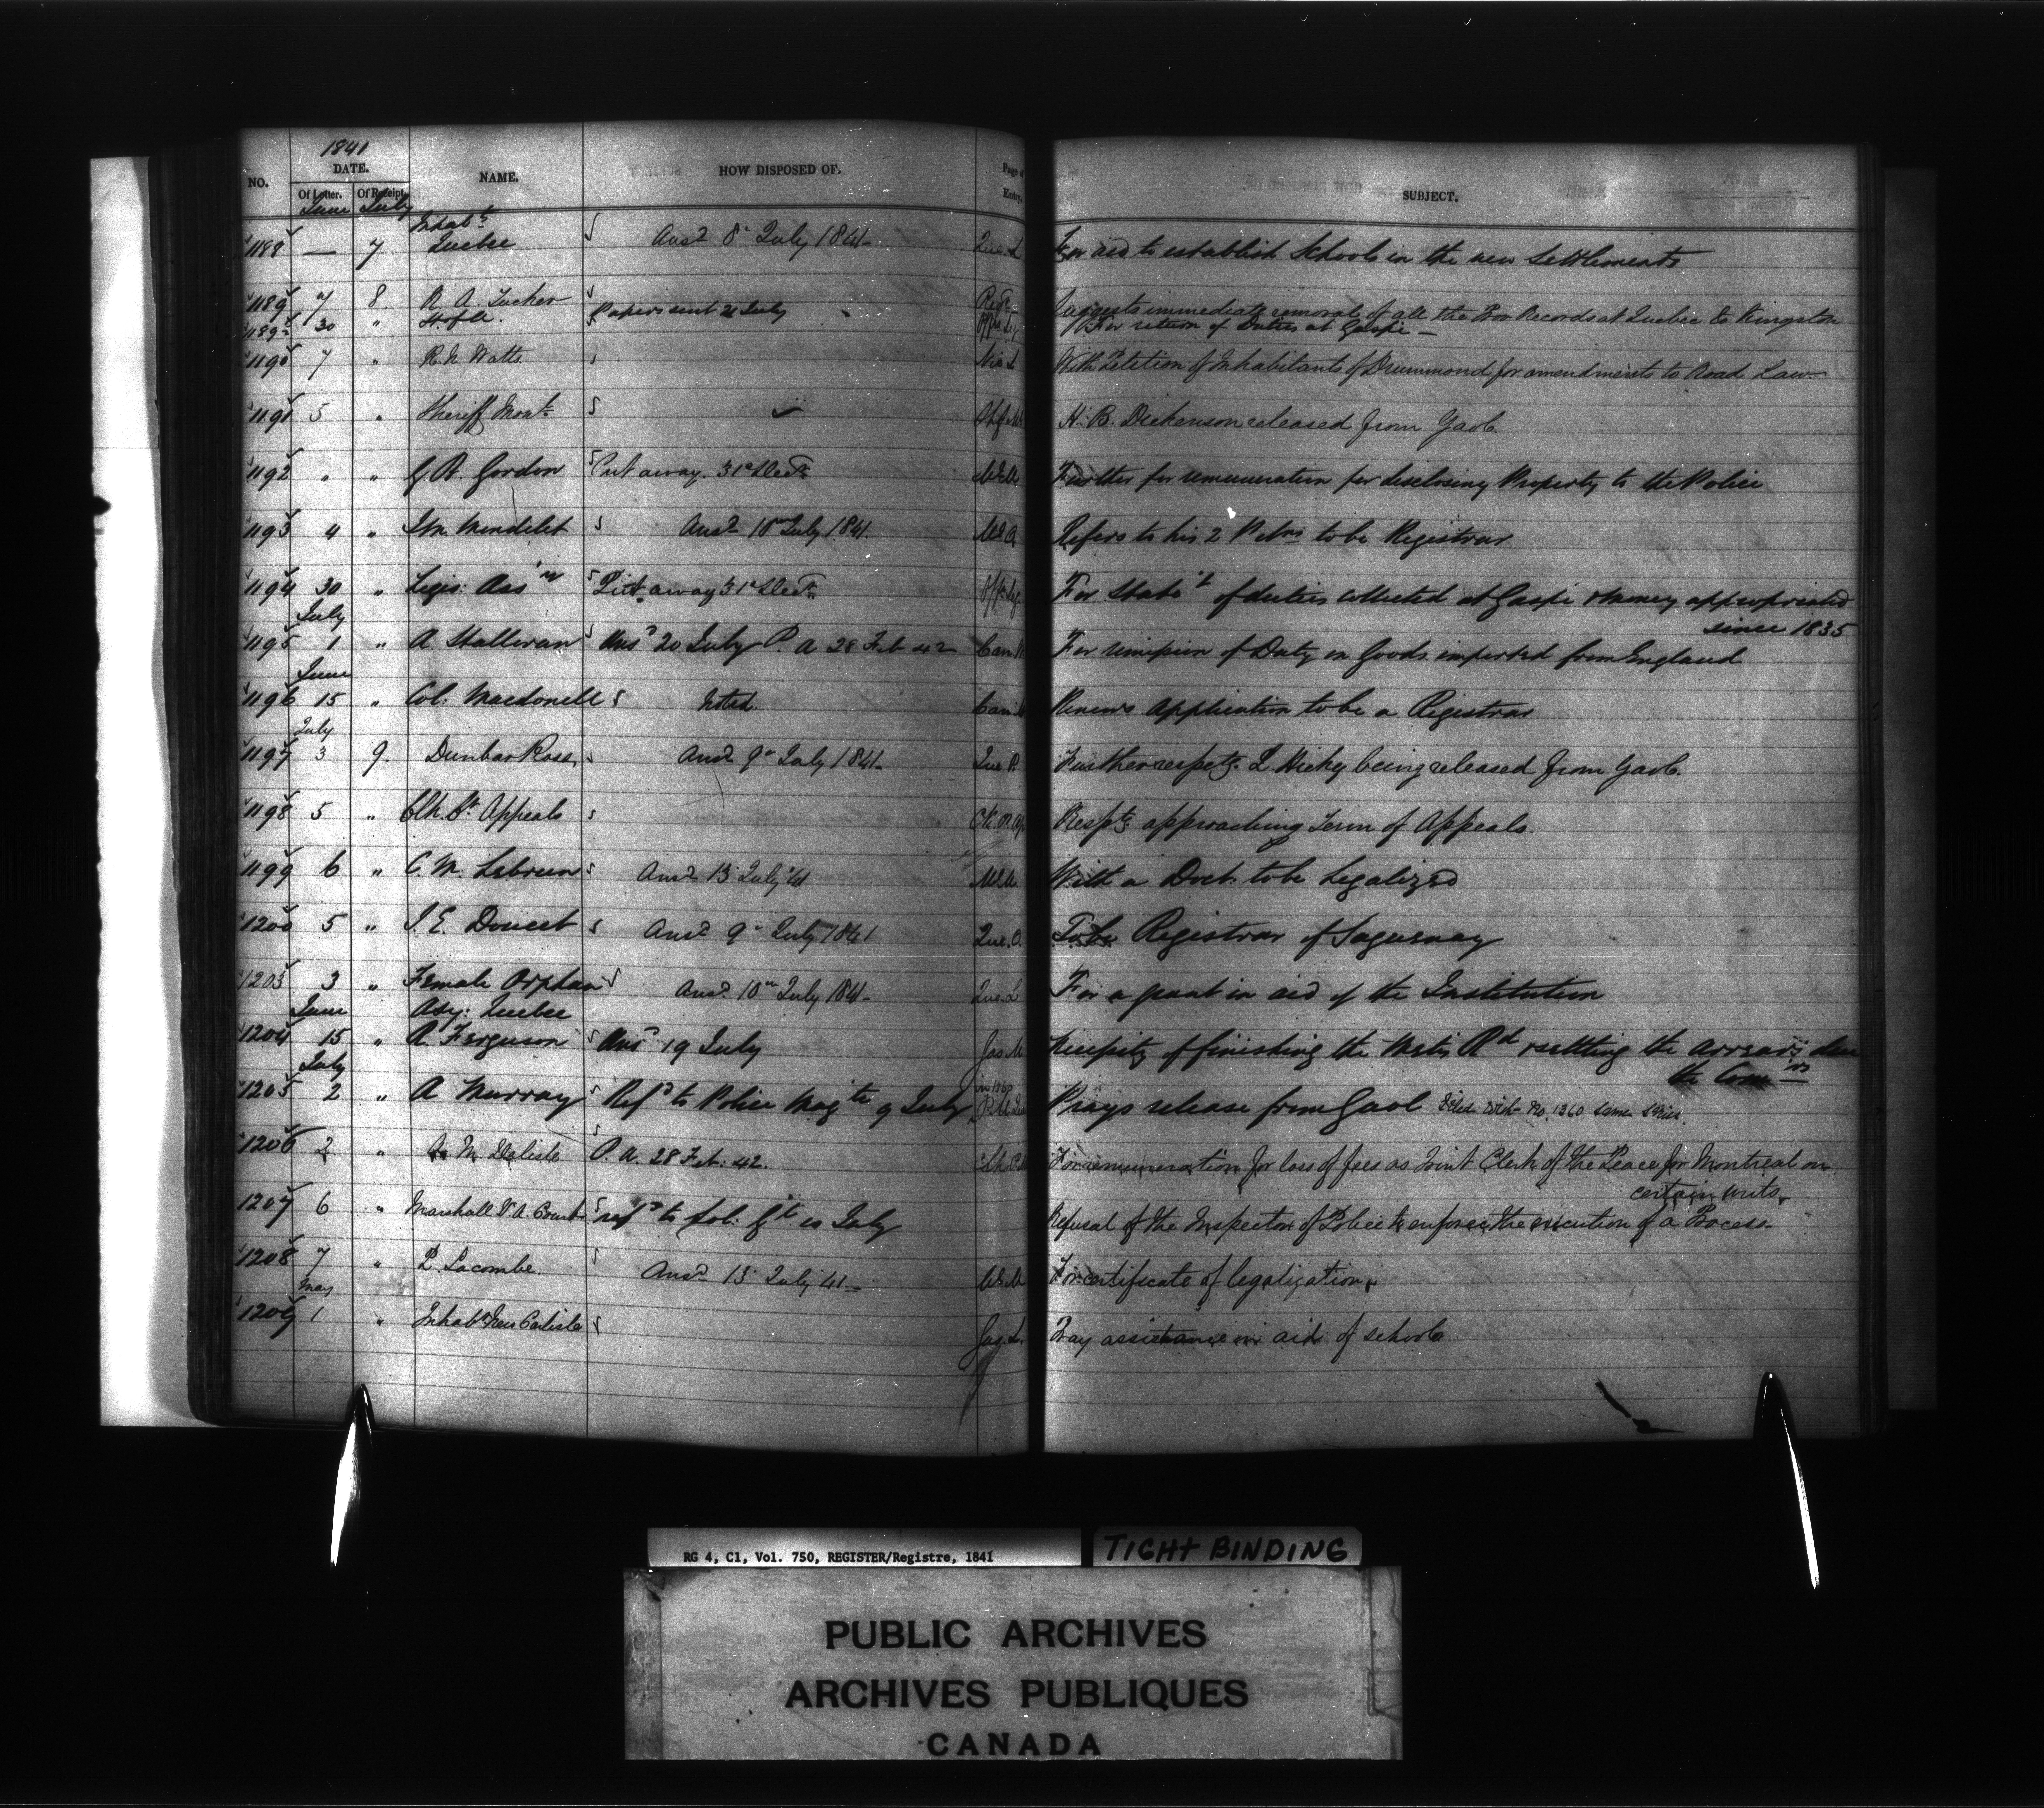 1841
NO. DATE. NAME. HOW DISPOSED OF. Page of Entry. SUBJECT.
Of Letter. Of Receipt.
June July
1188 — 7 Inhabts Quebec Ansd 8 July 1841 Que. L For aid to establish Schools in the new Settlements
1189 7 8 R. A. Tucker Suggests immediate removal of all the Records at Quebec to Kingston
1189½ 30 " H. of A. Papers sent 21 July For return of Duties at Gaspé —
1190 7 " R. N. Watts With Petition of Inhabitants of Drummond for amendments to Road Law
1191 5 " Sheriff Montl H. B. Dickenson released from Gaol.
1192 " " G. R. Gordon Put away 31 Decr Further for remuneration for disclosing Property to the Police
1193 4 " Mondelet Ansd 10 July 1841. Refers to his 2 Petns to be Registrar
1194 30 " Legis: Assn Put away 31 Decr For Statet of duties collected at Gaspé & money appropriated
since 1835
July
1195 1 " A. Hallowan Ansd 20 July P. A 28 Feb 42 For remission of Duty on Goods imported from England
June
1196 15 " Col. Macdonell Noted. Renews application to be a Registrar
July
1197 3 9. Dunbar Ross Ansd 9 July 1841 Que P. Further respectg L. Hickey being released from Gaol.
1198 5 " Clk. Ct Appeals Respg approaching Term of Appeals.
1199 6 " C. M. Lebrun Ansd 13 July 41 With a Doct. to be Legalized
1200 5 " J. E. Doucet Ansd 9 July 1841 Que. To be Registrar of Saguenay
1203 3 " Female Orphan Asy: Quebec Ansd 10 July 1841 Que. L For a grant in aid of the Institution
June
1204 15 " A. Ferguson Ansd 19 July Necessity of finishing the Metis Rd & settling the arrears due
the Comrs —
July
1205 2 " A Murray Refd to Police Magte 9 July Prays release from Gaol Filed with No. 1360 same Series.
1206 2 " A. M. Delisle P. A. 28 Feb: 42. For remuneration for loss of fees as Joint Clerk of the Peace for Montreal on
certain writs.
1207 6 " Marshall V. A. Court refd to Sol: Gl 10 July Refusal of the Inspector of Police to enforce the execution of a Process.
1208 7 " P. Lacombe Ansd 13 July 41 For certificate of legalization
May
1209 1 " Inhabts New Carlisle Pray assistance in aid of schools
RG 4, C1, Vol. 750, REGISTER/Registre, 1841
TIGHT BINDING
PUBLIC ARCHIVES
ARCHIVES PUBLIQUES
CANADA